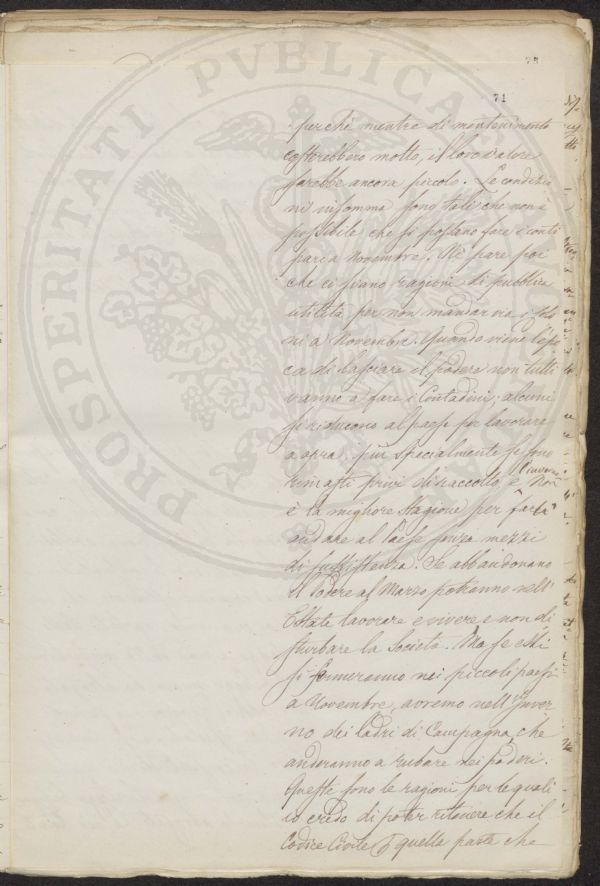 75
71
perchè mentre di mantenimento
costerebbero molto, il loro valore
sarebbe ancora piccolo. Le condizio
ni insomma sono tali che non è
possibile che si possano fare i conti
pari a Novembre. Nè pare poi
che ci siano ragioni di pubblica
utilità per non mandar via i
ni a Novembre. Quando viene l'epo
ca di lasciare il podere non tutti
vanno a fare i Contadini; alcuni
si riducono al paese per lavorare
a opra, più specialmente se sono
rimasti privi di raccolto, e l'inverno non
è la migliore stagione per farli
andare al Paese senza mezzi
di sussistenza. Se abbandonano
il Podere al Marzo potranno nell'
Estate lavorare e vivere e non di
sturbare la Società. Ma se essi
si fermeranno nei piccoli paesi
a Novembre, avremo nell'Inver
no dei ladri di Campagna, che
anderanno a rubare nei poderi.
Queste sono le ragioni per le quali
io credo di poter ritenere che il
Codice Civile quella parte che
PROSPERITATI PVBLICAE